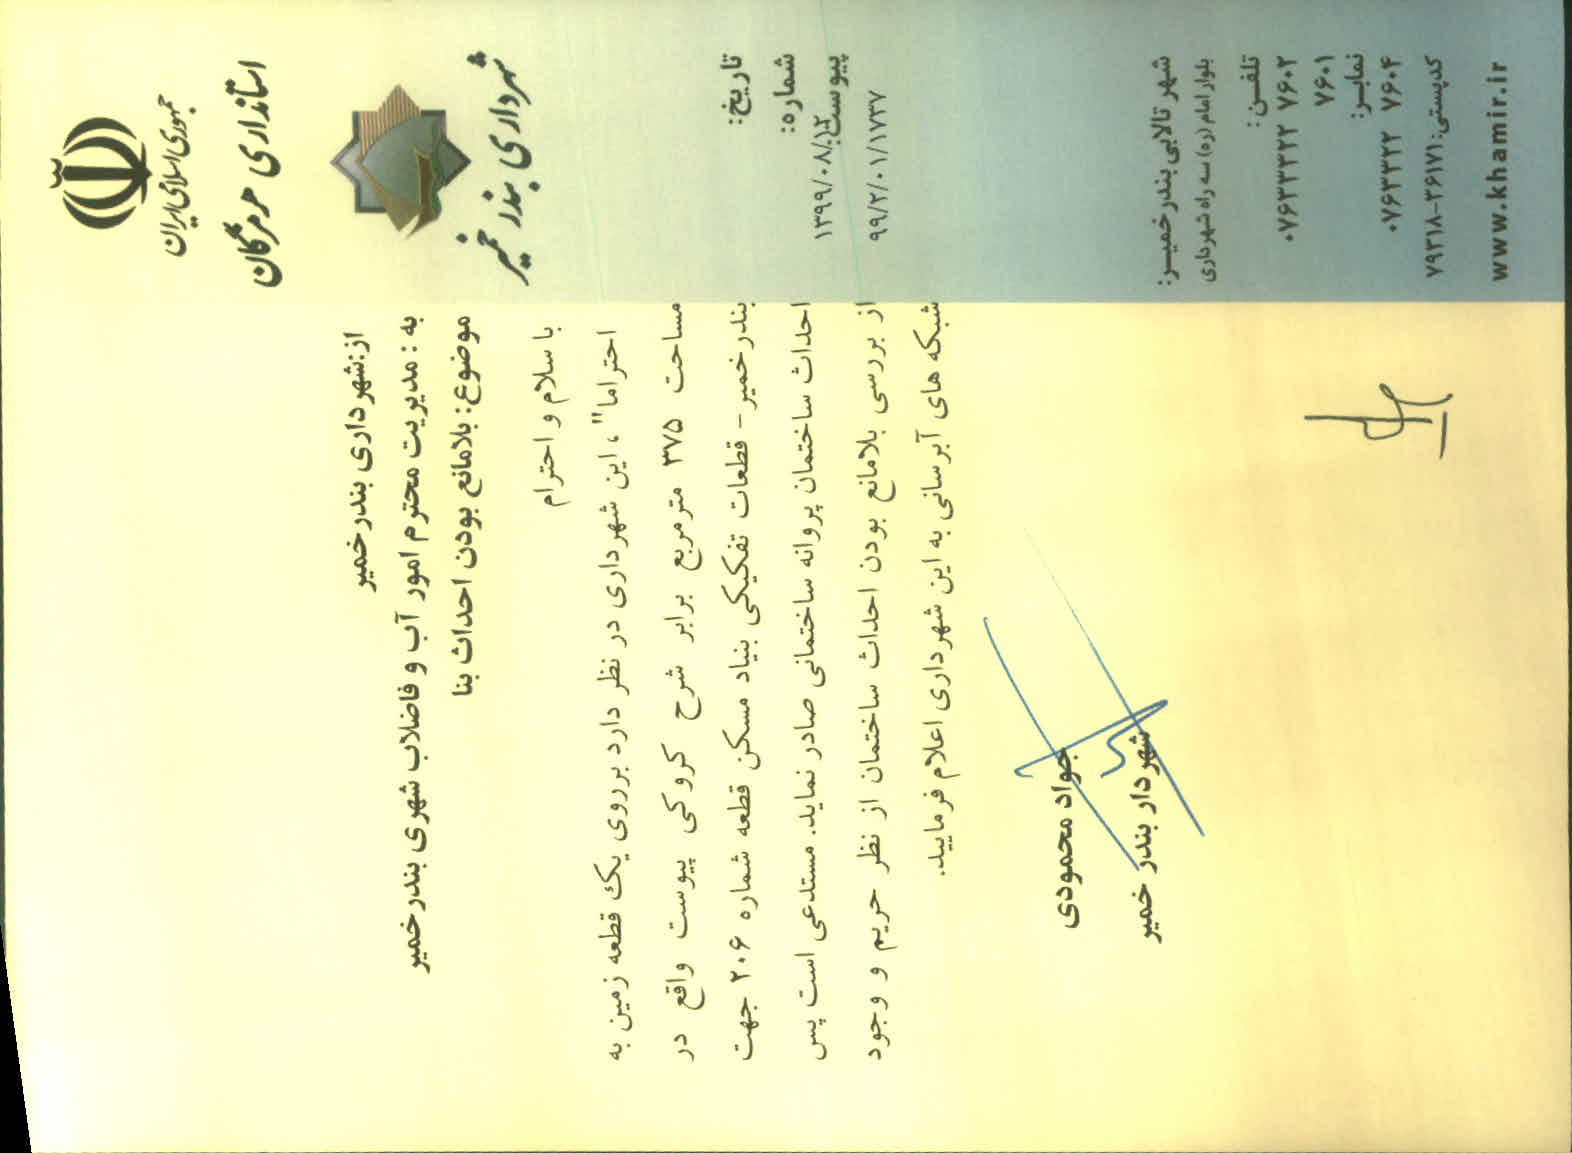 جمهوری اسلامی ایران
استانداری هرمزگان
شهرداری بندر خمیر
تاریخ:
شماره:
پیوست:
۱۳۹۹/۰۸/۱۲
۹۹/۲/۰۱/۱۷۳۷
از:شهرداری بندرخمیر
به : مدیریت محترم امور آب و فاضلاب شهری بندرخمیر
موضوع: بلامانع بودن احداث بنا
با سلام و احترام
احتراما" ، این شهرداری در نظر دارد برروی یک قطعه زمین به
مساحت ۳۷۵ مترمربع برابر شرح کروکی پیوست واقع در
بندرخمیر - قطعات تفکیکی بنیاد مسکن قطعه شماره ۲۰۶ جهت
احداث ساختمان پروانه ساختمانی صادر نماید. مستدعی است پس
از بررسی بلامانع بودن احداث ساختمان از نظر حریم و وجود
شبکه های آبرسانی به این شهرداری اعلام فرمایید.
جواد محمودی
شهردار بندر خمیر
شهر تالابی بندرخمیـر:
بلوار امام (ره) سه راه شهرداری
تلفـن:
۰۷۶۳۳۳۲ ۷۶۰۲
۷۶۰۱
نمابـر:
۰۷۶۳۳۳۲ ۷۶۰۴
کدپستی: ۲۶۱۷۱-۷۹۳۱۸
www.khamir.ir